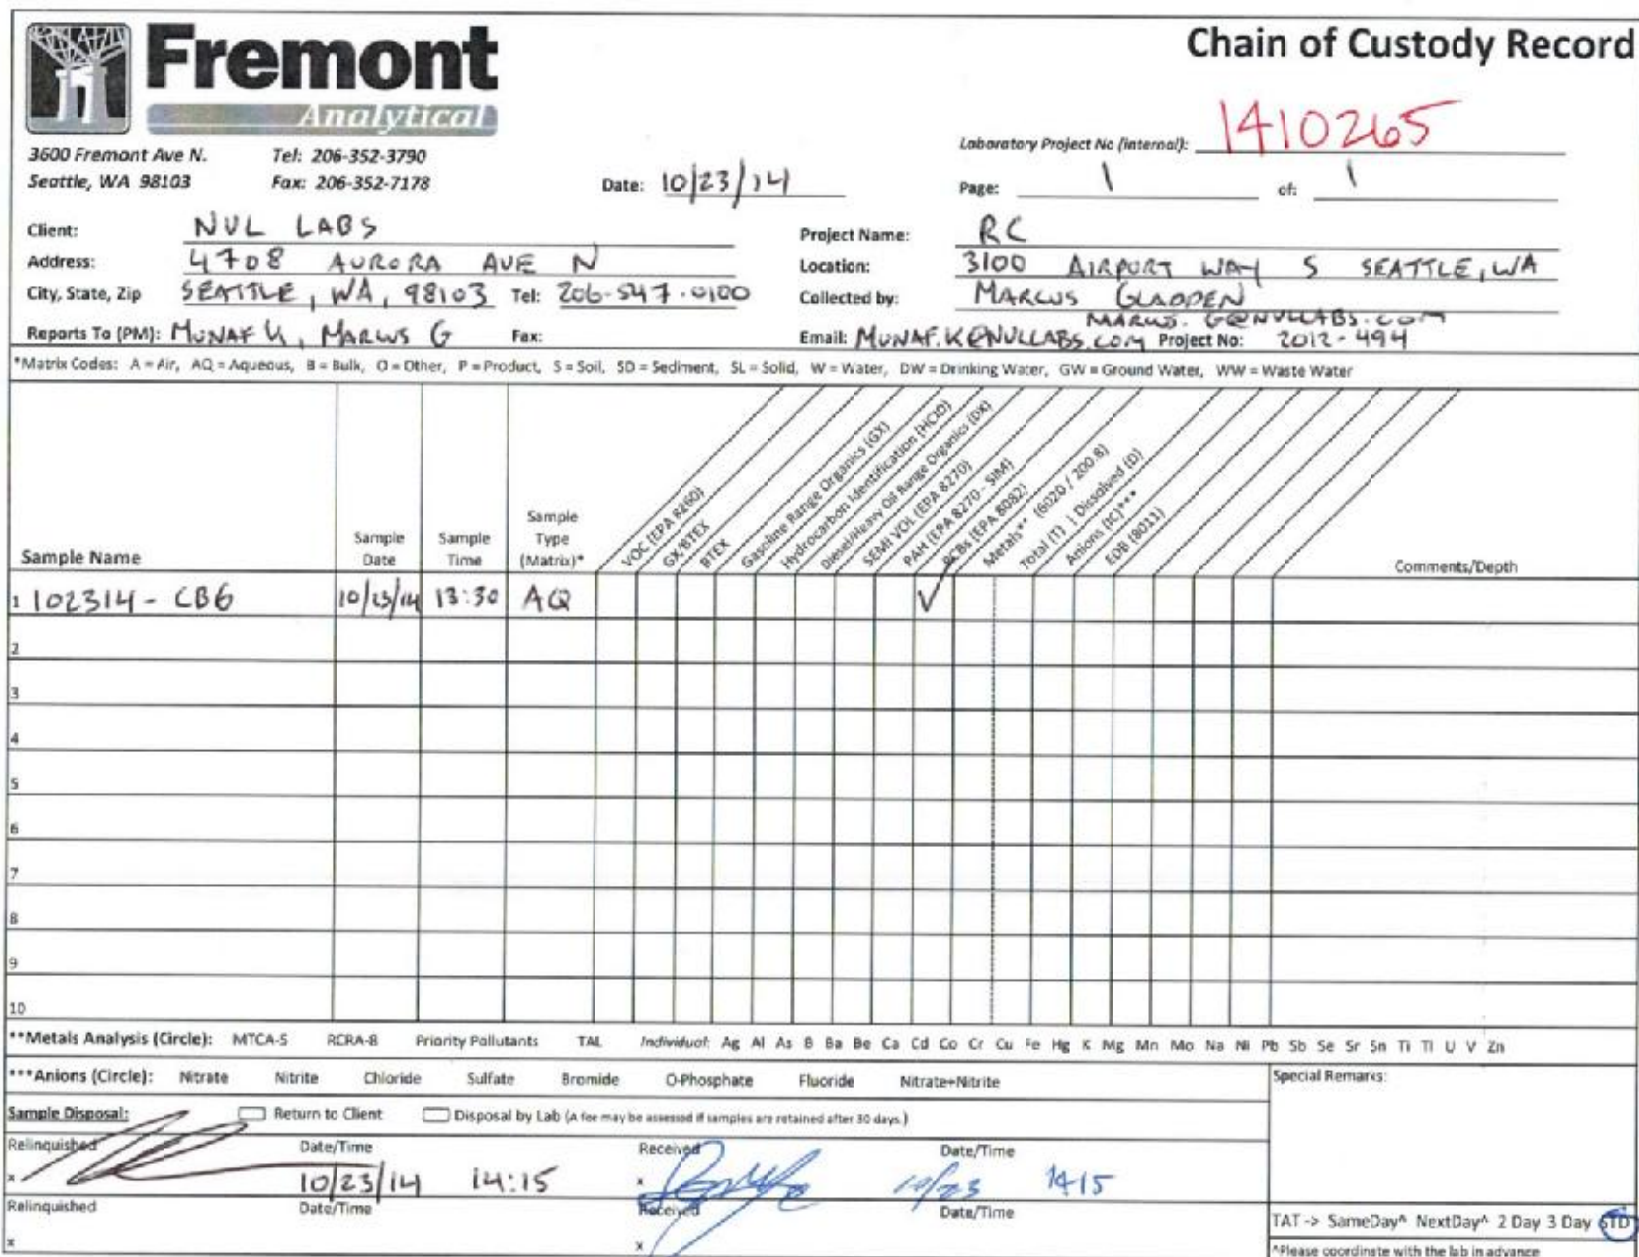 Fremont
Analytical
Chain of Custody Record
3600 Fremont Ave N. Tel: 206-352-3790
Seattle, WA 98103 Fax: 206-352-7178
Laboratory Project No (internal): 1410265
Date: 10/23/14 Page: 1 of: 1
Client: NVL LABS Project Name: RC
Address: 4708 AURORA AVE N Location: 3100 AIRPORT WAY S SEATTLE, WA
City, State, Zip SEATTLE, WA, 98103 Tel: 206-547-0100 Collected by: MARCUS GLADDEN
MARCUS.G@NVLLABS.COM
Reports To (PM): MUNAF K, MARCUS G Fax: Email: MUNAF.K@NVLLABS.COM Project No: 2012-494
*Matrix Codes: A = Air, AQ = Aqueous, B = Bulk, O = Other, P = Product, S = Soil, SD = Sediment, SL = Solid, W = Water, DW = Drinking Water, GW = Ground Water, WW = Waste Water
Sample Name
Sample Date
Sample Time
Sample Type (Matrix)*
VOC (EPA 8260)
GX/BTEX
BTEX
Gasoline Range Organics (GX)
Hydrocarbon Identification (HCID)
Diesel/Heavy Oil Range Organics (DX)
SEMI VOL (EPA 8270)
PAH (EPA 8270 - SIM)
PCBs (EPA 8082)
Metals** (6020 / 200.8)
Total (T) | Dissolved (D)
Anions (IC)***
EDB (8011)
Comments/Depth
1 102314 - CB6 10/23/14 13:30 AQ ✓
2
3
4
5
6
7
8
9
10
**Metals Analysis (Circle): MTCA-5 RCRA-8 Priority Pollutants TAL Individual: Ag Al As B Ba Be Ca Cd Co Cr Cu Fe Hg K Mg Mn Mo Na Ni Pb Sb Se Sr Sn Ti Tl U V Zn
***Anions (Circle): Nitrate Nitrite Chloride Sulfate Bromide O-Phosphate Fluoride Nitrate+Nitrite
Special Remarks:
Sample Disposal: Return to Client Disposal by Lab (A fee may be assessed if samples are retained after 30 days.)
Relinquished Date/Time Received Date/Time
x 10/23/14 14:15 x 10/23 1415
Relinquished Date/Time Received Date/Time
x x
TAT -> SameDay^ NextDay^ 2 Day 3 Day STD
^Please coordinate with the lab in advance